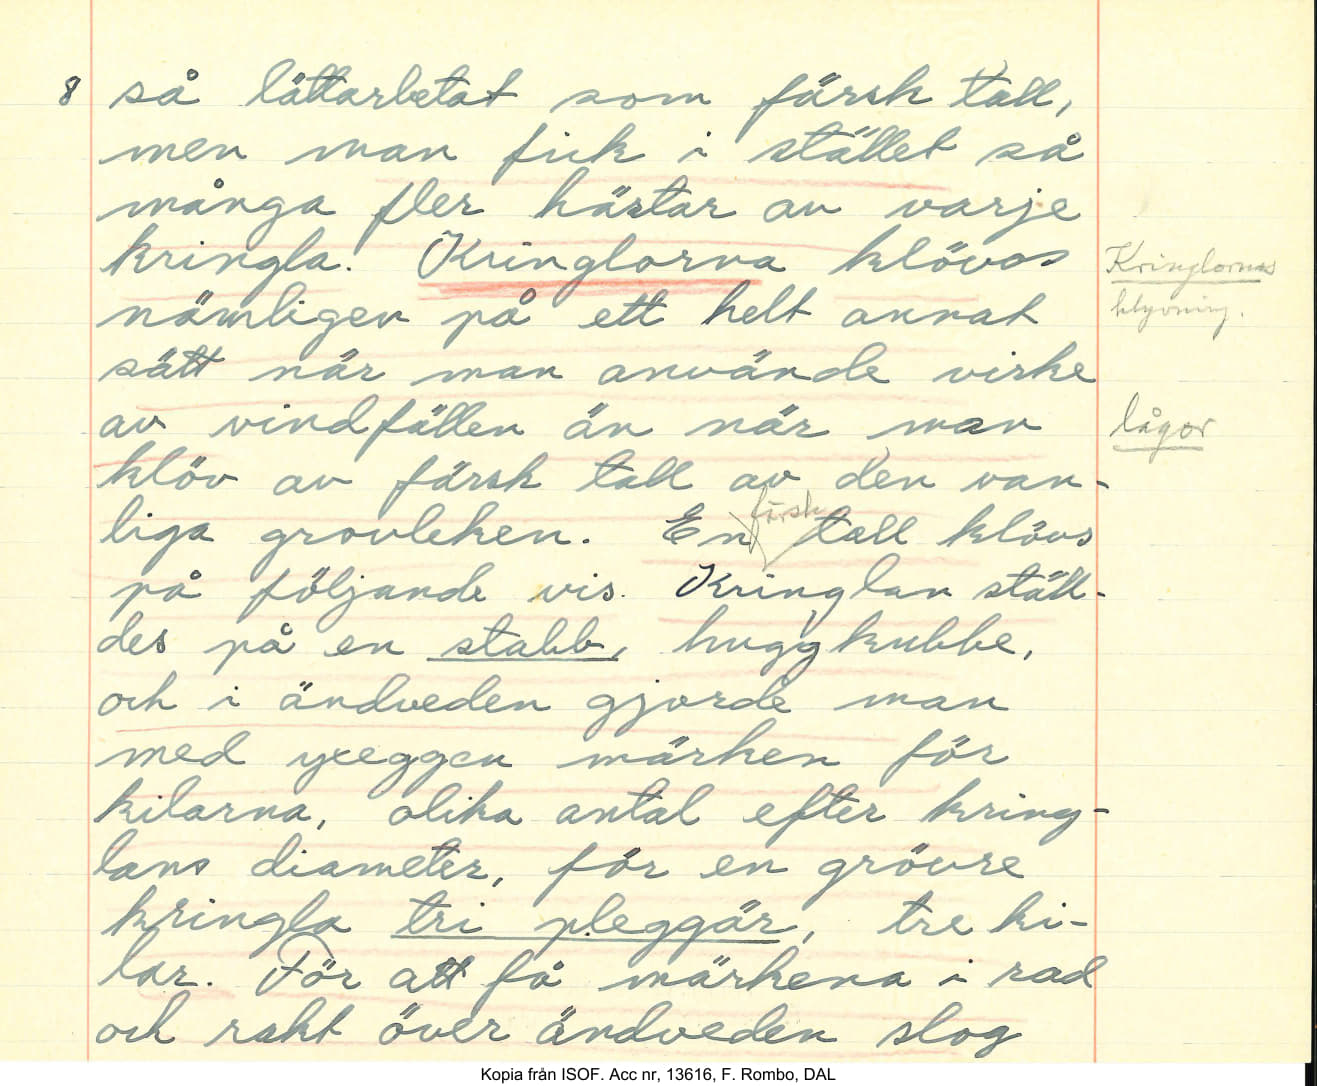 8 så lättarbetat som färsk tall,
men man fick i stället så
många fler hästar av varje
kringla. Kringlorna klövos
Kringlornas
nämligen på ett helt annat
klyvning.
sätt när man använde virke
av vindfällen än när man
lågor
klöv av färsk tall av den van-
färsk
liga grovleken. En tall klövs
på följande vis. Kringlan ställ-
des på en stabb, huggkubbe,
och i ändveden gjorde man
med yxeggen märken för
kilarna, olika antal efter kring-
lans diameter, för en grövre
kringla tri pleggär, tre ki-
lar. För att få märkena i rad
och rakt över ändveden slog
Kopia från ISOF. Acc nr, 13616, F. Rombo, DAL